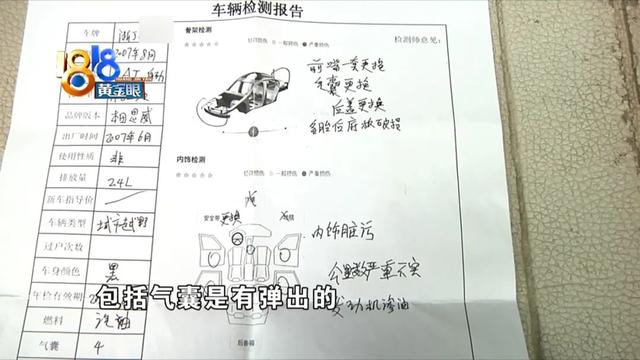 车辆检测报告
车牌 浙
骨架检测
检测师意见:
轻微损伤 一般损伤 严重损伤
2007年8月
AT 自动
前端一套更换
气囊更换
后盖更换
1818
黄金眼
品牌版本
出厂时间 2007年6月
使用性质 非
内饰检测
轻微损伤 一般损伤 严重损伤
排放量 2.4L
新车指导价
车辆类型 城市越野
安全带 更换
内饰脏污
过户次数
车身颜色 黑
公里数严重不实
年检有效期
包括气囊是有弹出的
发动机渗油
燃料 汽油
后备箱
气囊 4